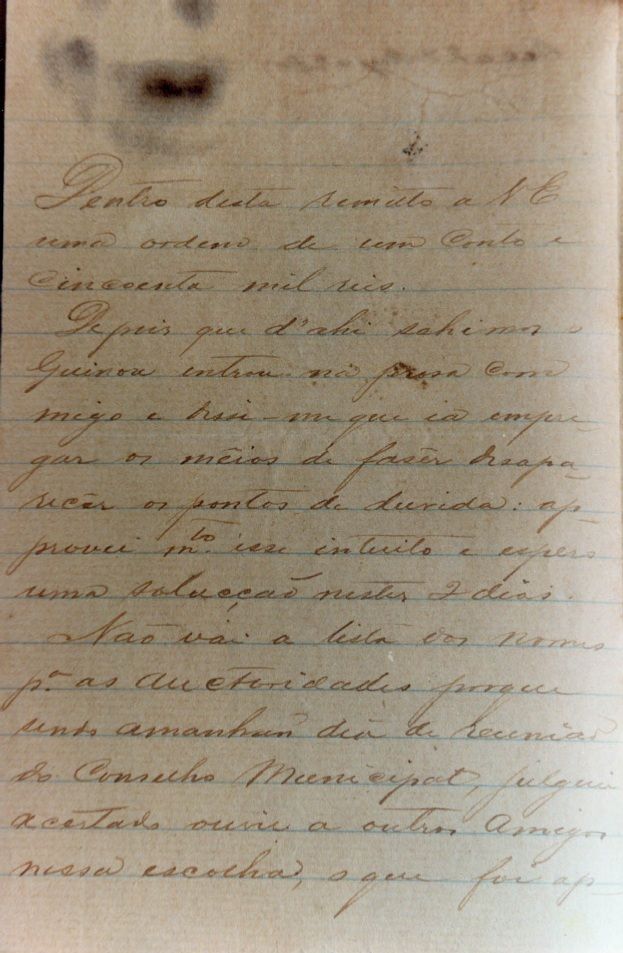 Dentro desta remetto a V E
uma ordem de um conto e
cincoenta mil reis.
Depois que d'ahi sahimos o
Guinou entrou na prosa com
migo e disse-me que ia empre-
gar os meios de fasêr desapa-
recêr os pontos de duvida: ap-
provei mto. isse intuito e espero
uma solucção nestes 2 dias.
Não vai a lista dos nomes
pa. as auctoridades porque
sendo amanhan dia de reunião
do Conselho Municipal, julguei
acertado ouvir a outros amigos
nessa escolha, o que foi ap-